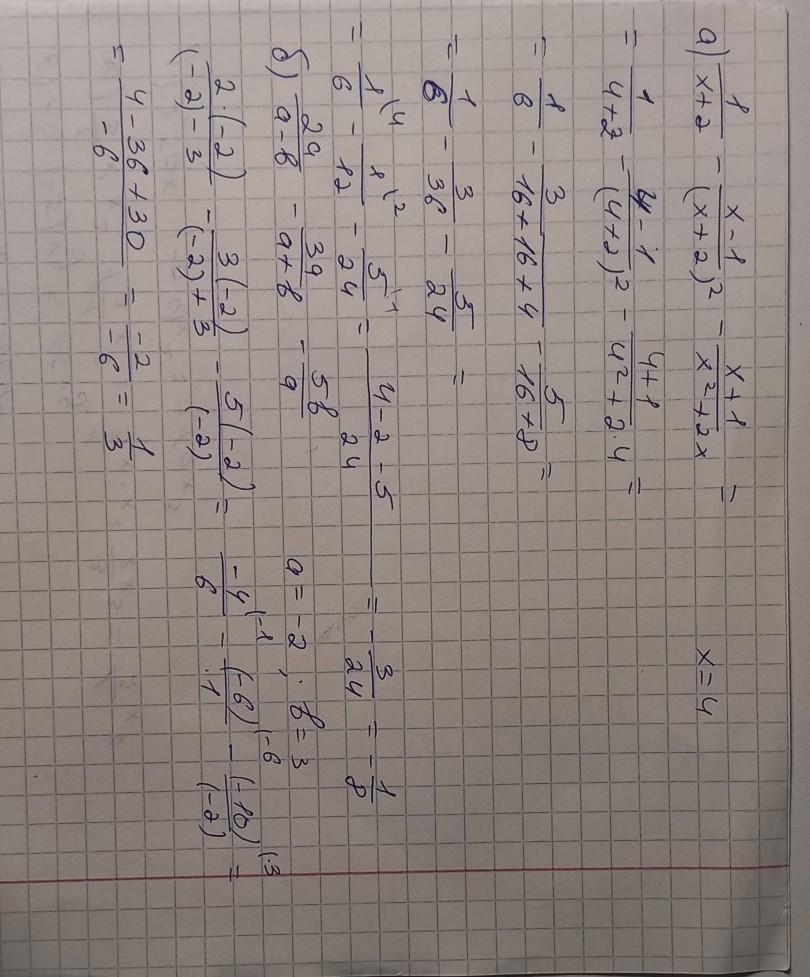 а) 1/(x+2) - (x-1)/(x+2)² - (x+1)/(x²+2x) = x=4
= 1/(4+2) - (4-1)/(4+2)² - (4+1)/(4²+2·4) =
= 1/6 - 3/(16+16+4) - 5/(16+8) =
= 1/6 - 3/36 - 5/24 =
= 1\4/6 - 1\2/12 - 5\1/24 = (4-2-5)/24 = -3/24 = -1/8
б) 2a/(a-в) - 3a/(a+в) - 5в/a a=-2; в=3
2·(-2)/((-2)-3) - 3(-2)/((-2)+3) - 5(-2)/(-2) = -4\-1/6 - (-6)\-6/1 - (-10)\3/(-2) =
= (4-36+30)/-6 = -2/-6 = 1/3